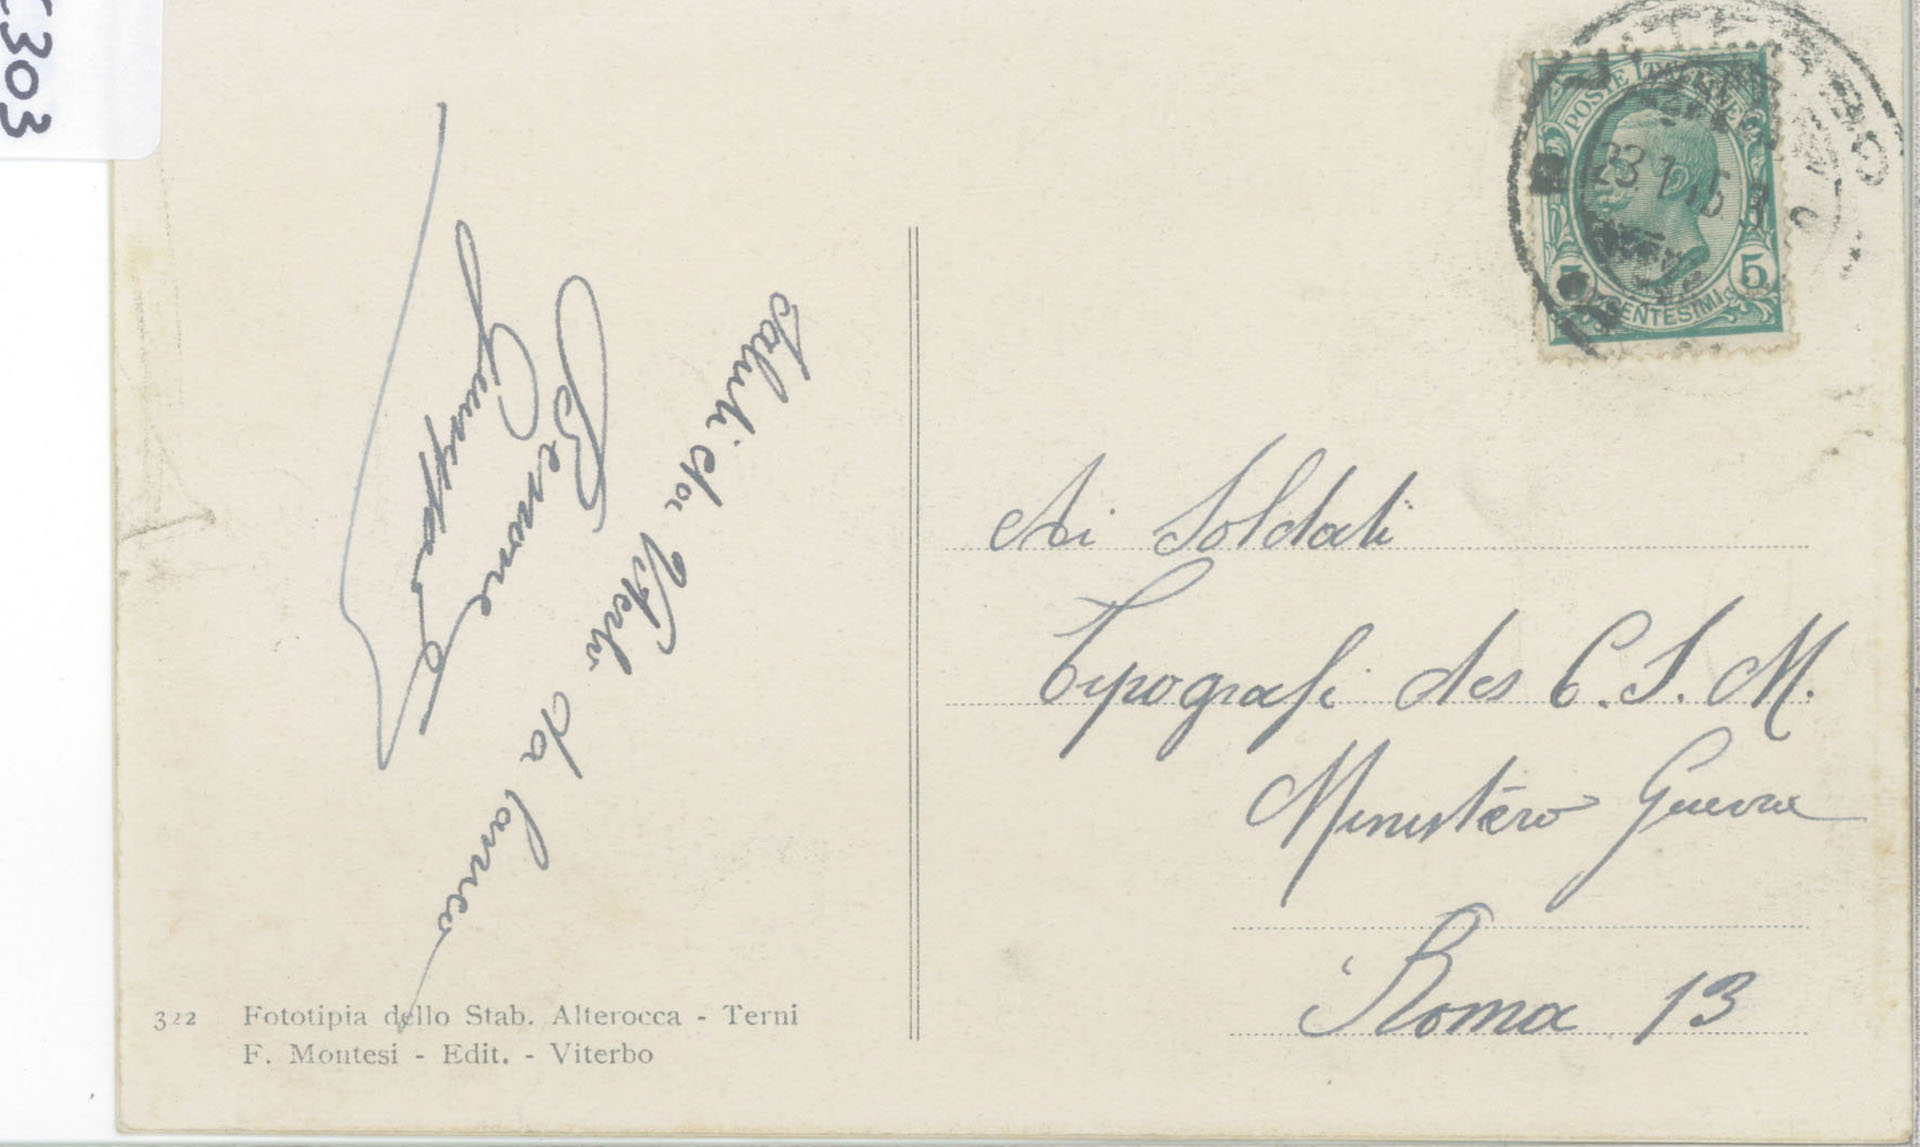 C303
POSTE ITALIANE
23.1.15
5
5
CENTESIMI
Saluti da Viterbo
Ai Soldati
Tipografi del C.S.M.
Ministero Guerra
Roma 13
322 Fototipia dello Stab. Alterocca - Terni
F. Montesi - Edit. - Viterbo